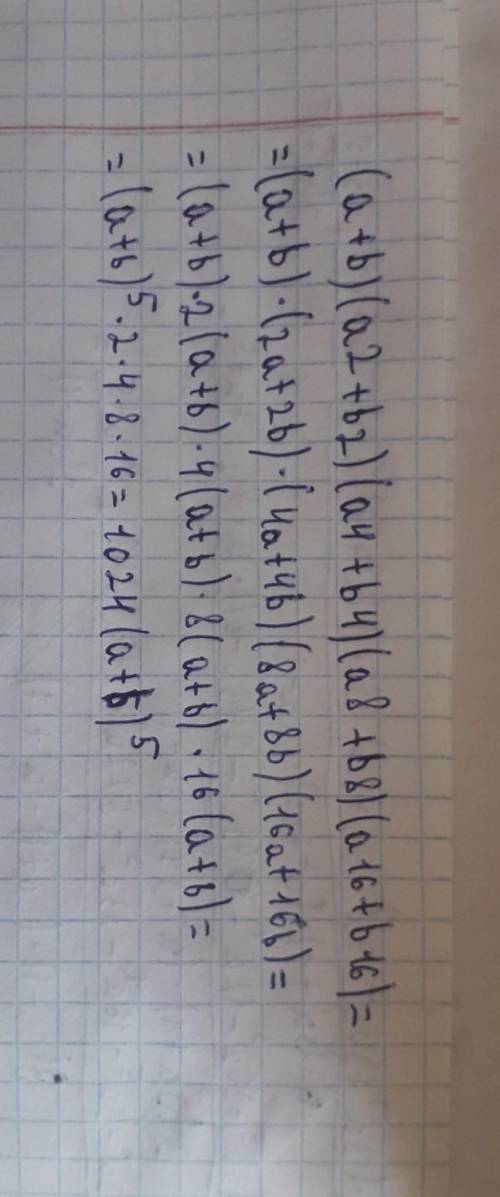 (a+b)(a2+b2)(a4+b4)(a8+b8)(a16+b16)=
=(a+b)·(2a+2b)·(4a+4b)(8a+8b)(16a+16b)=
=(a+b)·2(a+b)·4(a+b)·8(a+b)·16(a+b)=
=(a+b)⁵·2·4·8·16=1024(a+b)⁵